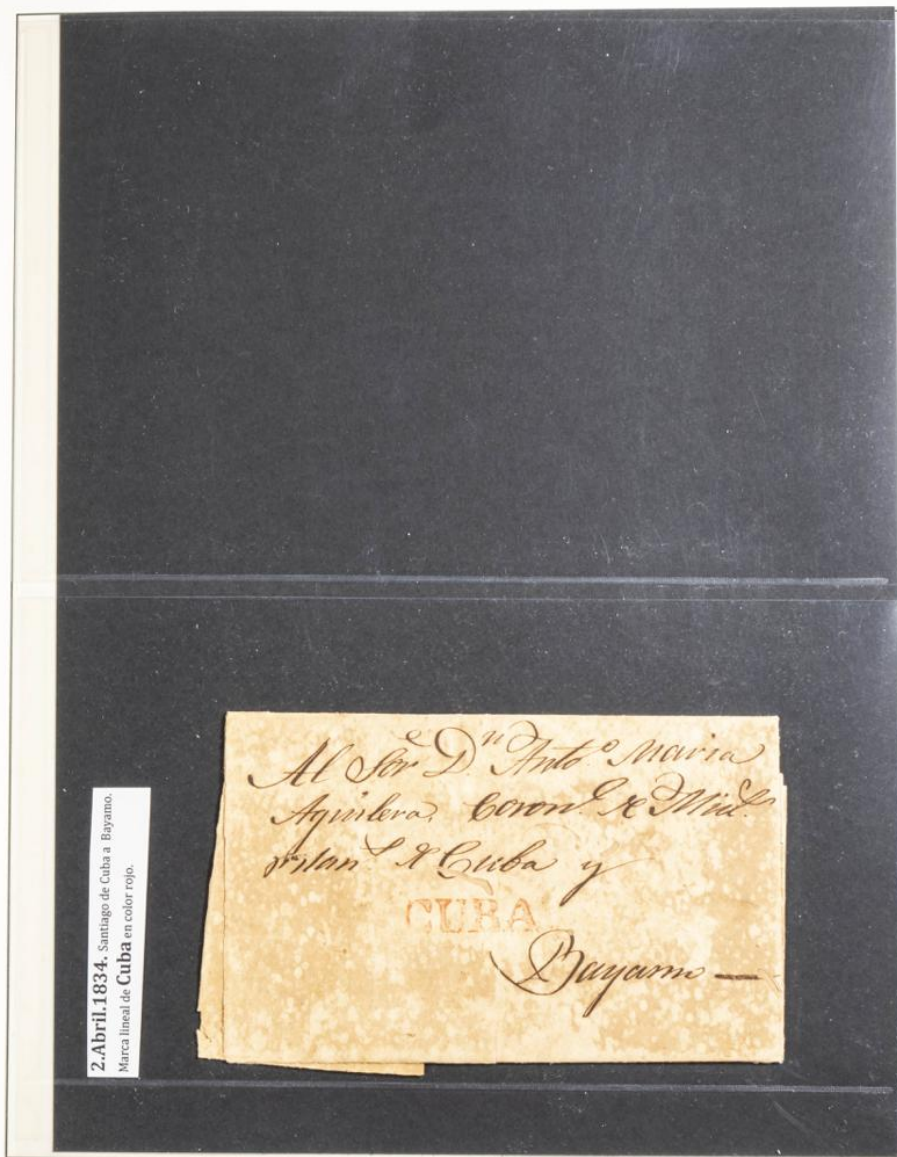 2.Abril.1834. Santiago de Cuba a Bayamo.
Marca lineal de Cuba en color rojo.
Al Sor Dn Anto Maria
Aguilera. Coronl de
de Cuba y
CUBA
Bayamo